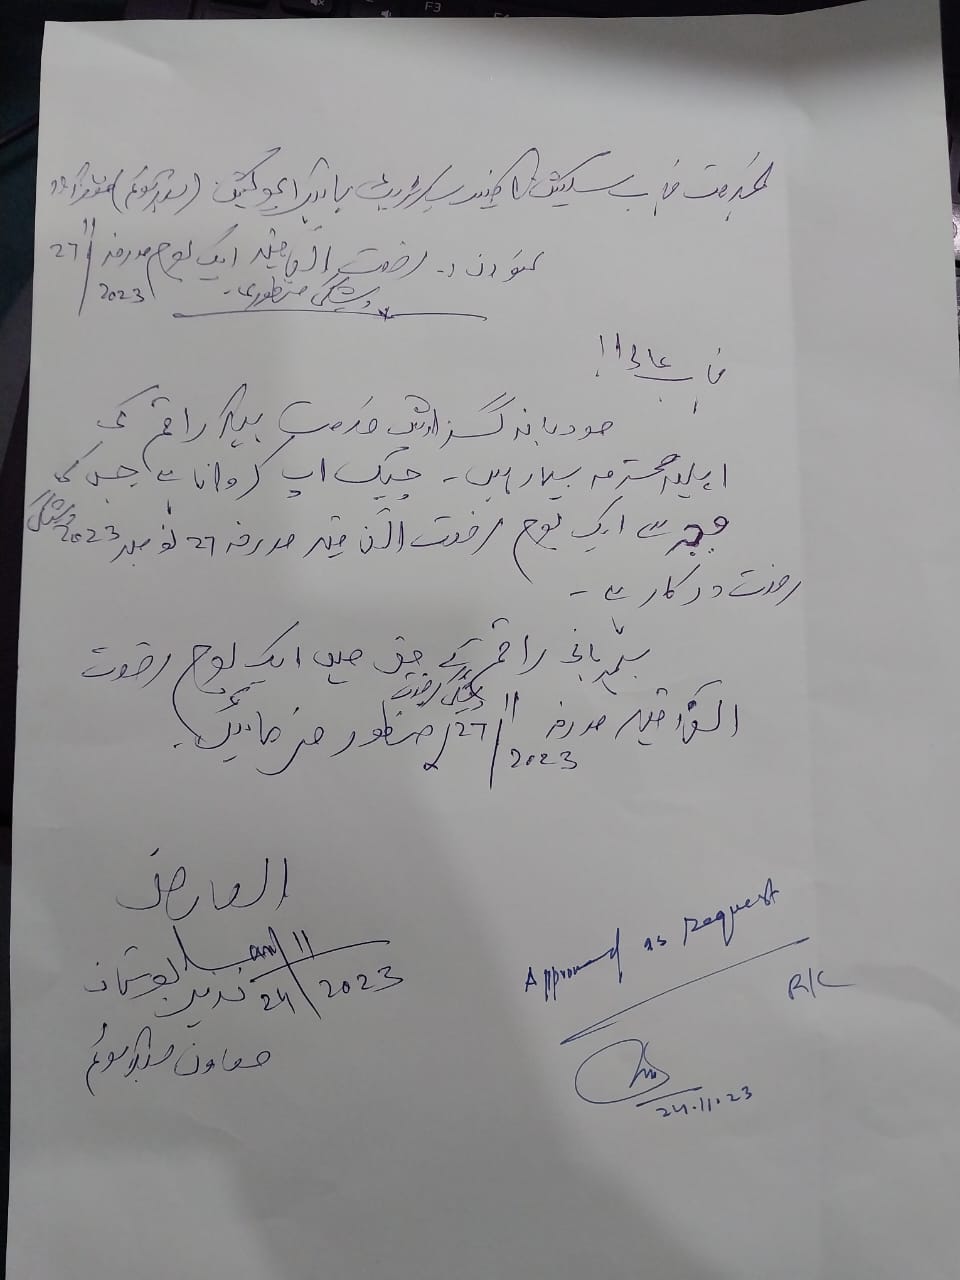 بخدمت جناب سیکشن آفیسر ہائیر ایجوکیشن
بعنوان :۔ رخصت اتفاقیہ ایک یوم مورخہ 27/11/2023
پیشگی منظوری۔
جناب عالی!!
مودبانہ گزارش خدمت ہیکہ راقم کی
اہلیہ محترمہ بیمار ہیں۔ چیک اپ کروانا ہے جس کی
وجہ سے ایک یوم رخصت اتفاقیہ مورخہ 27 نومبر 2023 پیشگی
رخصت درکار ہے۔
مہربانی راقم کے حق میں ایک یوم رخصت
اتفاقیہ مورخہ 27/11/2023 پیشگی رخصت منظور فرمائیں۔
العارض
24/11/2023
معاون
Approved as request
R/C
24.11.23